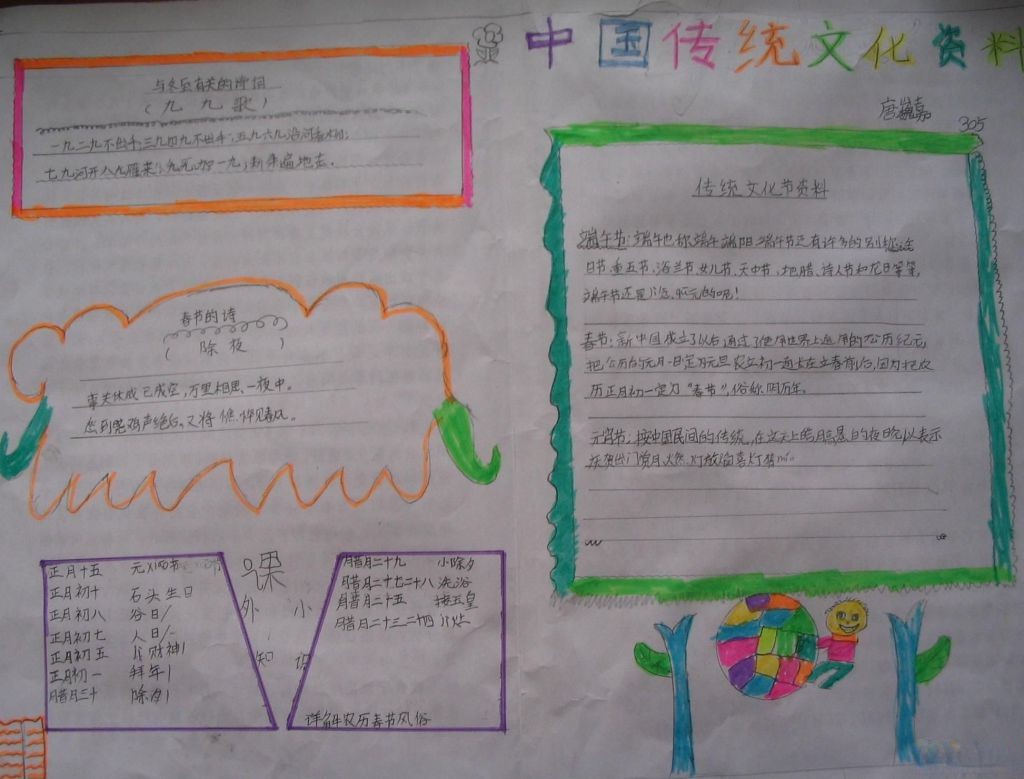 中国传统文化资料
唐 嘉
305
与冬至有关的诗词
(九九歌)
一九二九不出手;三九四九不出手;五九六九沿河看柳;
七九河开八九雁来;九九加一九;耕 遍地去.
春节的诗
(除夜)
事关休戚已成空,万里相思一夜中。
愁到晓鸡声绝后,又将憔悴见春风。
正月十五 元 节
正月初十 石头生日
正月初八 谷日
正月初七 人日
正月初五 财神
正月初一 拜年
腊月三十 除夕
课
外 小
知 识
腊月二十九 小除夕
腊月二十七二十八 洗浴
腊月二十五 接玉皇
腊月二十三二十四
详解农历春节风俗
传统文化节资料
端午节:端午也称端午 端阳 端午节还有许多的别称
日节 重五节、浴兰节、女儿节、天中节、 腊、诗人节和龙日等等,
端午节还是 的呢!
春节:新中国成立了以后通过了使用世界上通用的公历纪元,
把公历的元月一日定为元旦 农立初一通 在立春前后,因为把农
历正月初一定为“春节”,俗称阴历年。
元宵节:按中国民间的传统,在这天上皓月高悬的夜晚 以表示
庆贺出门赏月、燃灯放 喜 灯猜